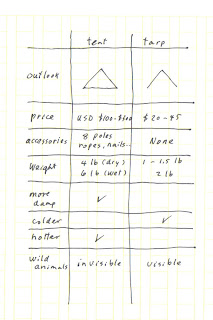 tent tarp
outlook
price USD $100-$300 $20-45
accessories 8 poles None
ropes, nails..
Weight 4 lb (dry) 1 - 1.5 lb
6 lb (wet) 2 lb
more
damp ✓
colder ✓
hotter ✓
wild invisible visible
animals